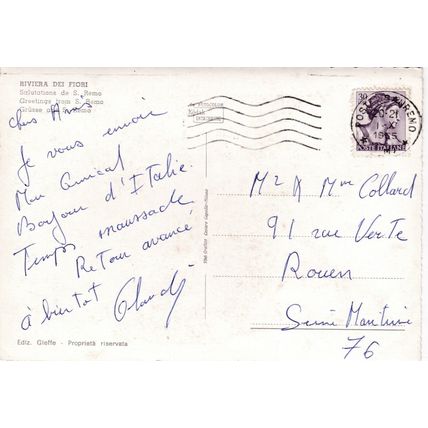 RIVIERA DEI FIORI
Salutations de S. Remo
Greetings from S. Remo
Grüsse aus S. Remo
Chers Amis
Je vous envoie
Mon Amical
Bonjour d'Italie.
Temps maussade
Retour avancé
à bientôt Claude
Ediz. Gieffe - Proprietà riservata
30
POSTE ITALIANE
20-21
M & Mme Collard
91 rue Verte
Rouen
Seine Maritime
76